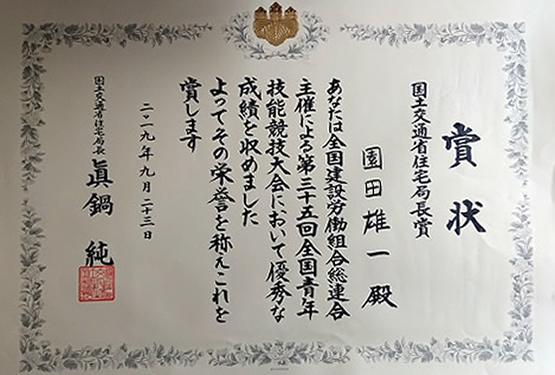 賞状
国土交通省住宅局長賞
園田雄一殿
あなたは全国建設労働組合総連合
主催による第三十五回全国青年
技能競技大会において優秀な
成績を収めました
よってその栄誉を称えこれを
賞します
二〇一九年九月二十三日
国土交通省住宅局長 眞鍋 純